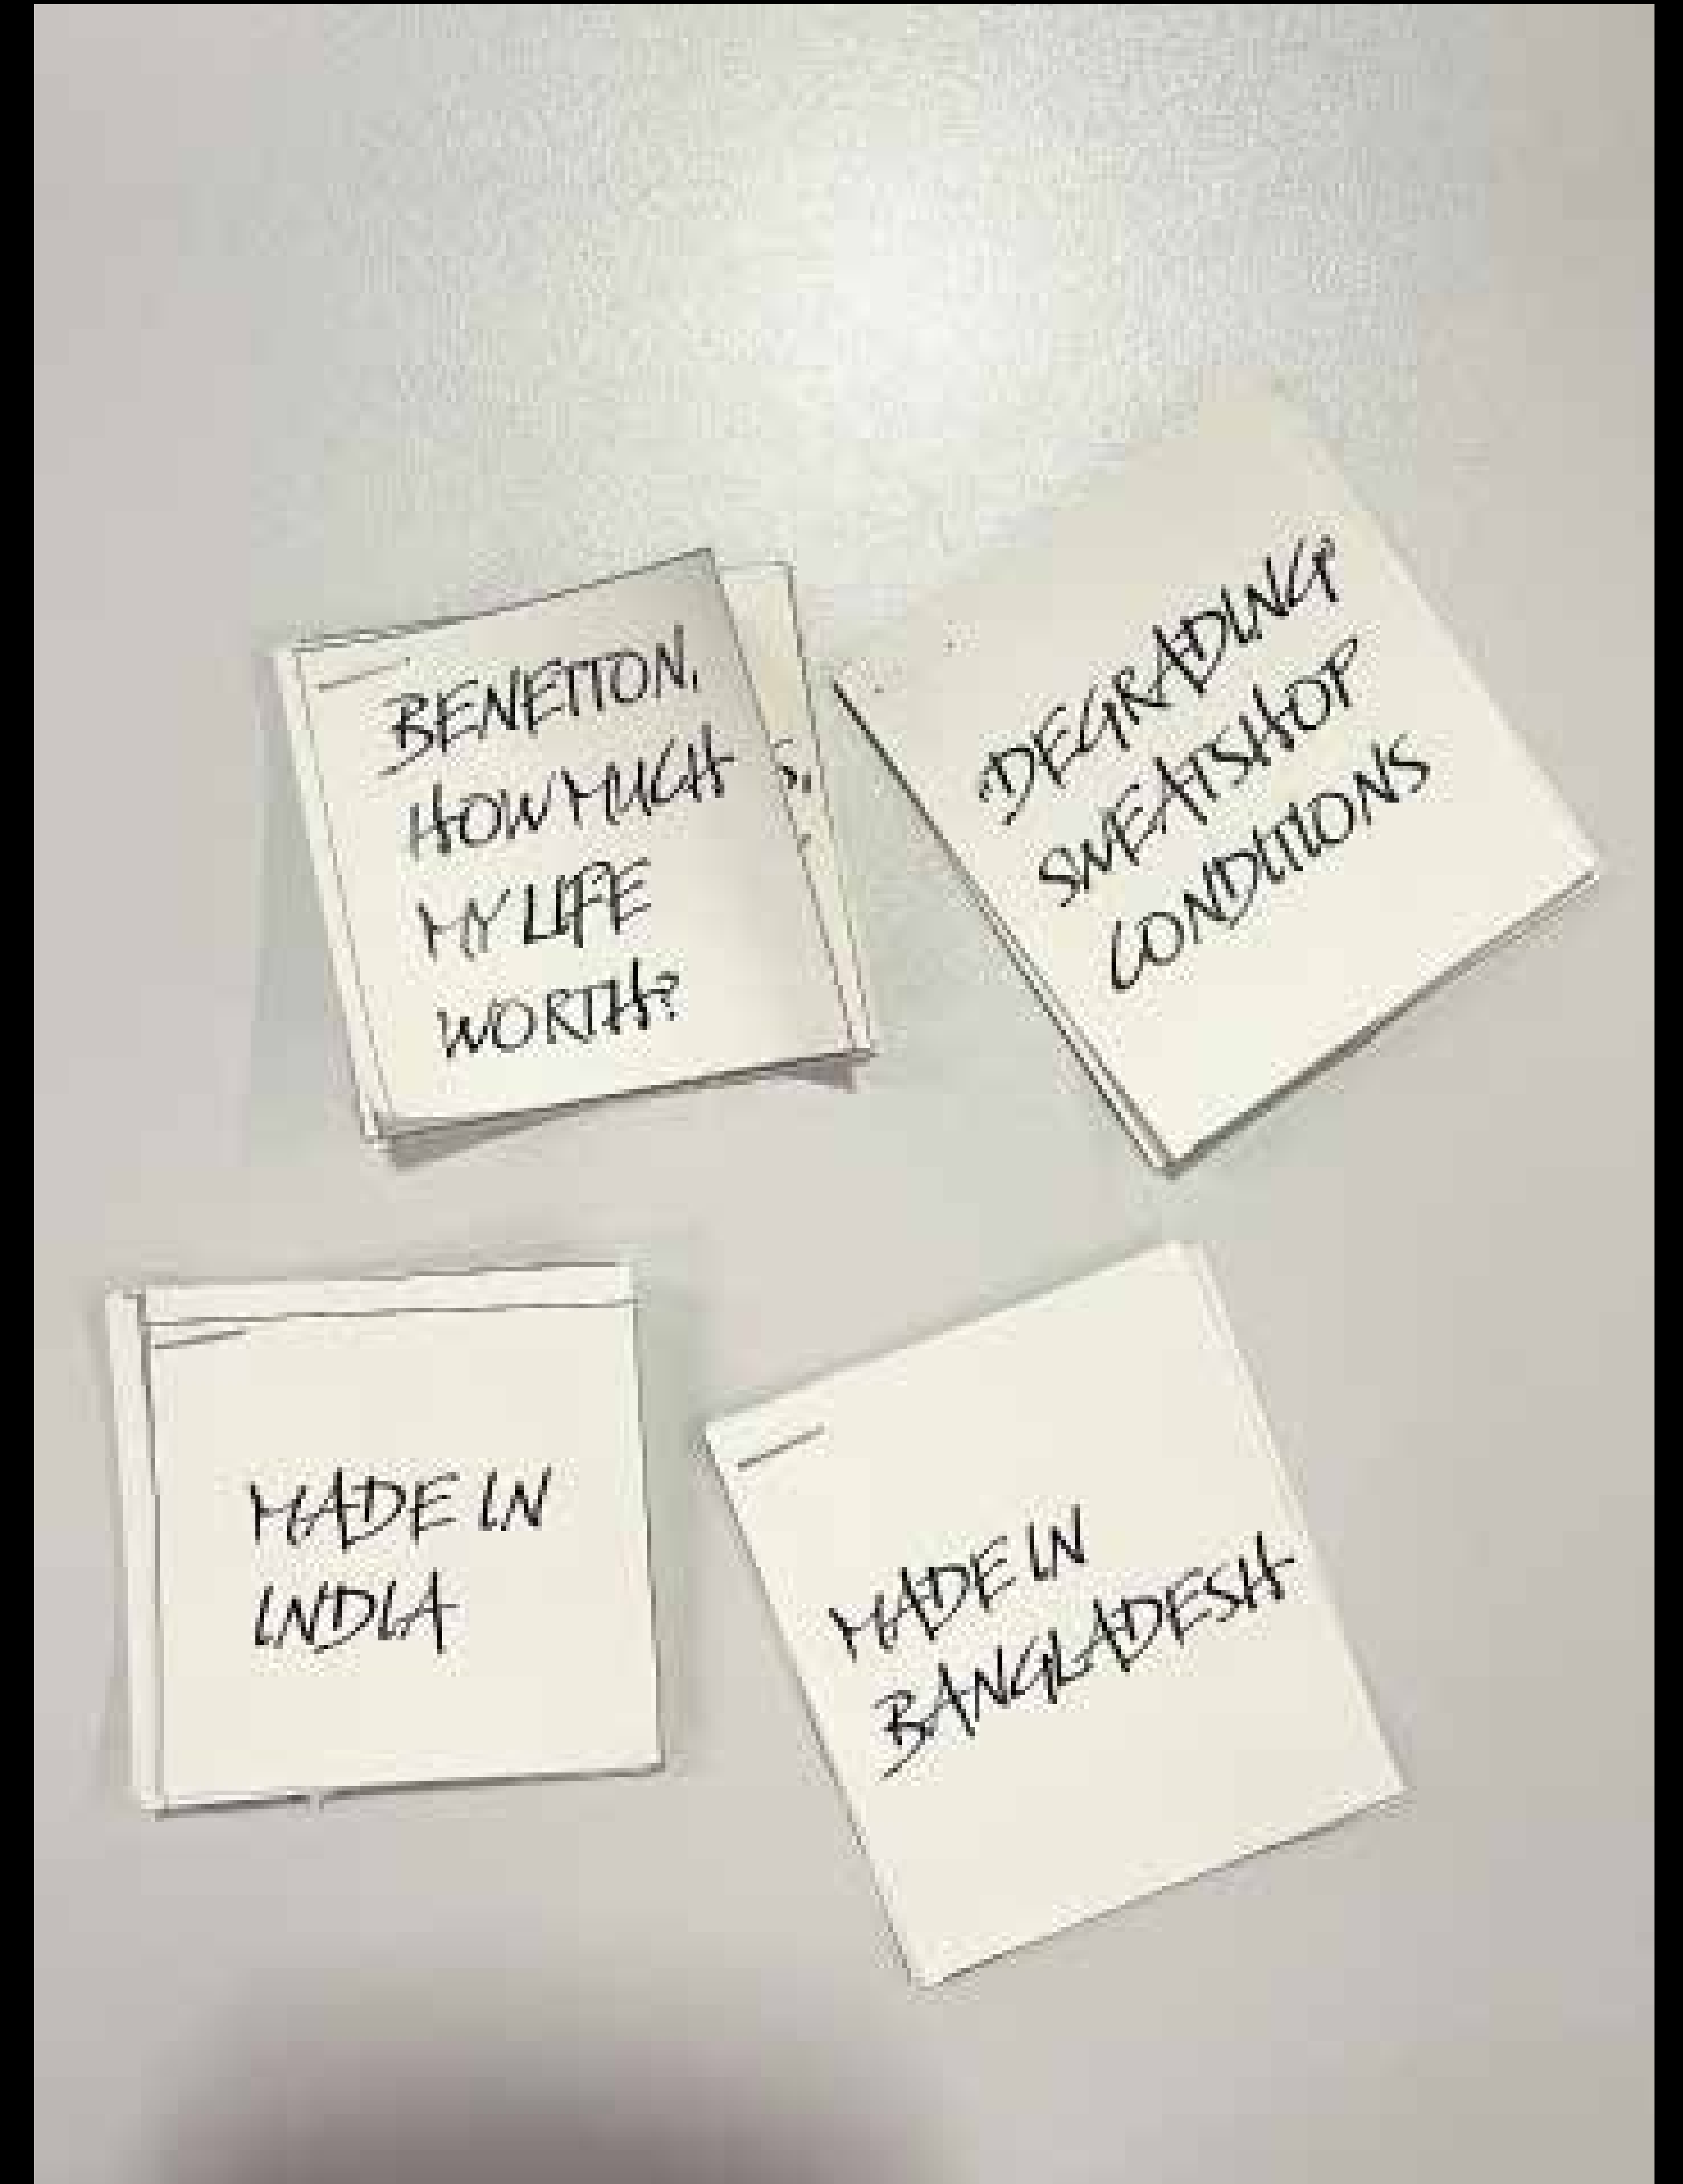 BENETTON,
HOW MUCH
MY LIFE
WORTH?
DEGRADING
SWEATSHOP
CONDITIONS
MADE IN
INDIA
MADE IN
BANGLADESH